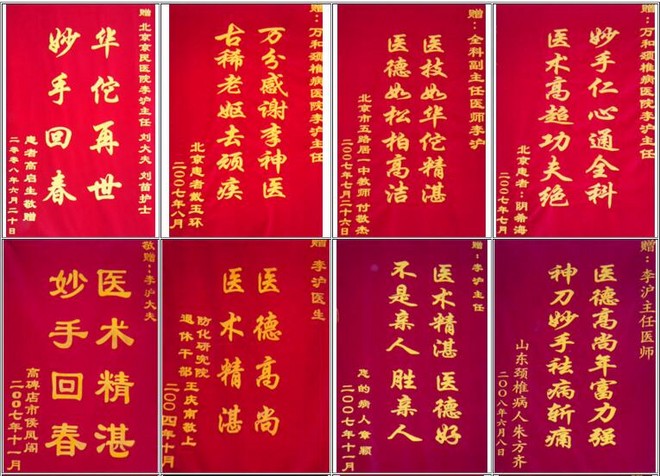 赠：北京京民医院李沪主任 刘大夫 刘苗护士
华佗再世
妙手回春
患者高启生敬赠
二零零八年六月二十日
赠：万和颈椎病医院李沪主任
万分感谢李神医
古稀老妪去顽疾
北京患者戴玉环
二〇〇七年八月
赠：全科副主任医师李沪
医技如华佗精湛
医德如松柏高洁
北京市五路居一中教师 付敬
二〇〇七年七月二十六日
赠：万和颈椎病医院李沪主任
妙手仁心通全科
医术高超功夫绝
北京患者：阴希海
二〇〇七年七月
敬赠：李沪大夫
医术精湛
妙手回春
高碑店市侯凤阁
二〇〇七年十一月
赠 李沪医生
医德高尚
医术精湛
防化研究院
退休干部 王庆南敬上
二〇〇四年十月
赠：李沪主任
医术精湛 医德好
不是亲人 胜亲人
您的病人章颖
二〇〇七年十一月
赠：李沪主任医师
医德高尚年富力强
神刀妙手祛病斩痛
山东颈椎病人朱方齐
二〇〇八年六月八日